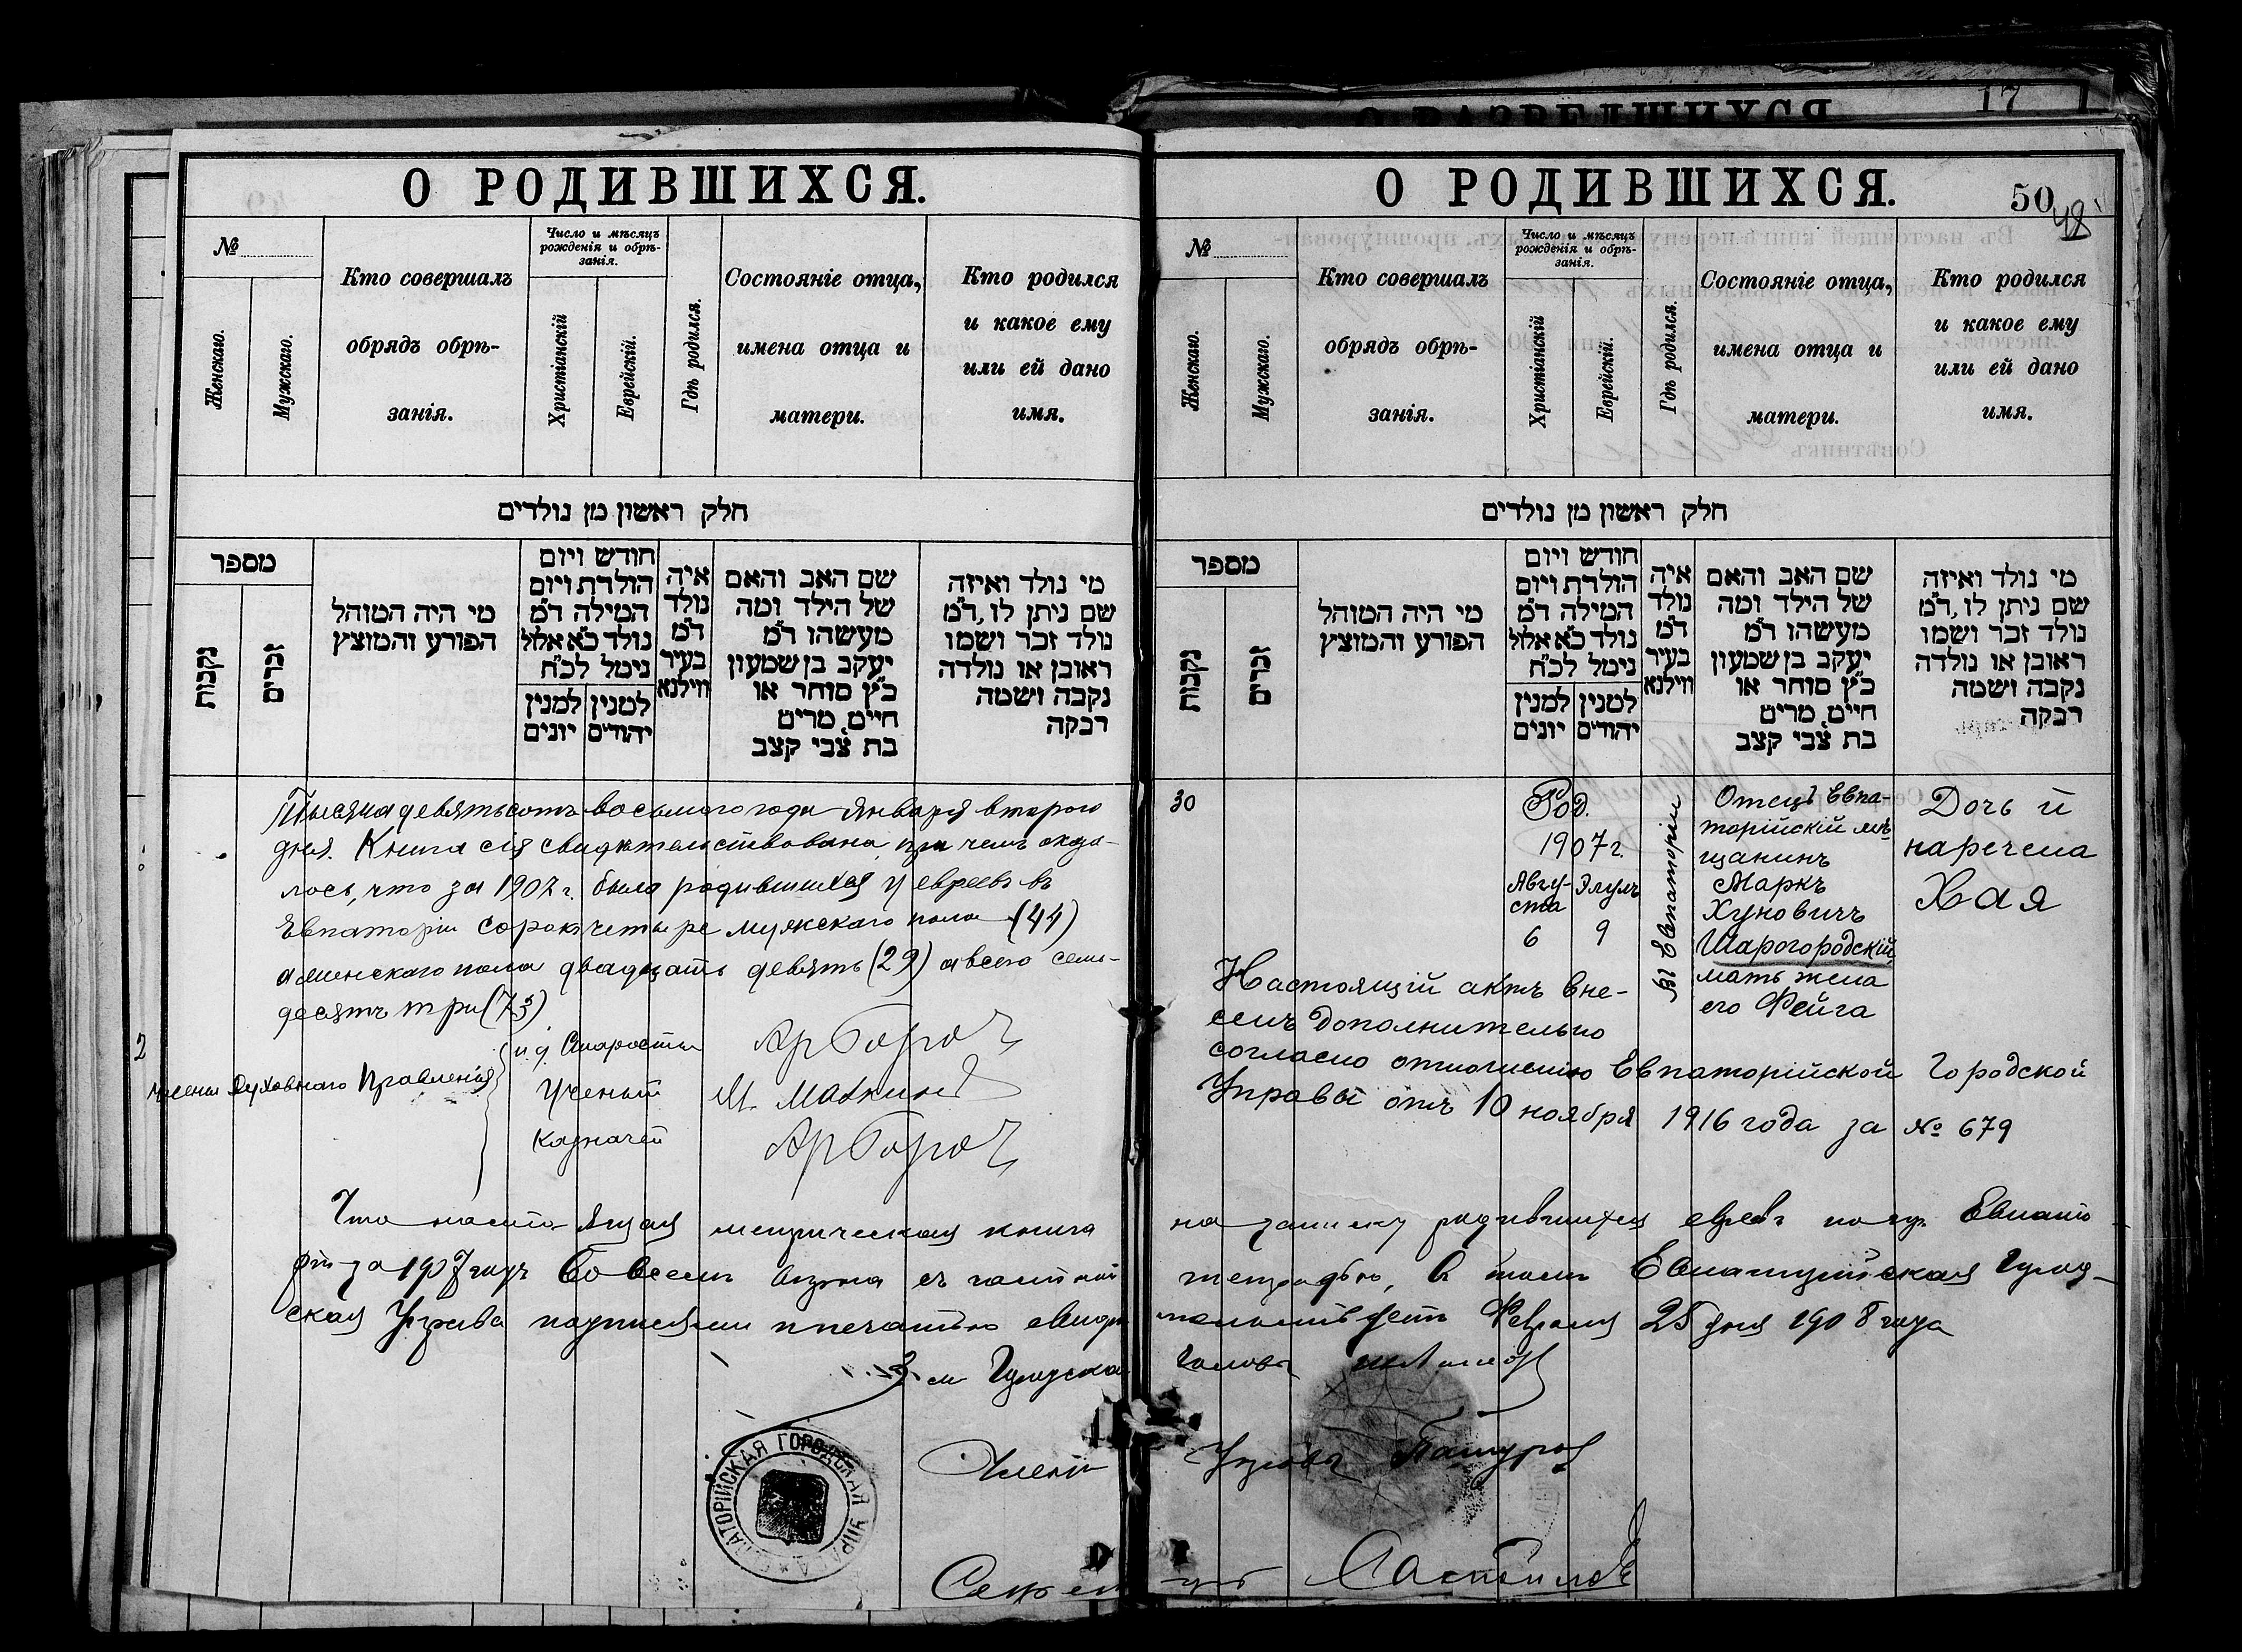 О РОДИВШИХСЯ.
№
Женскаго.
Мужскаго.
Кто совершалъ
обрядъ обрѣ-
занія.
Число и мѣсяцъ
рожденія и обрѣ-
занія.
Христіанскій
Еврейскій.
Гдѣ родился.
Состояніе отца,
имена отца и
матери.
Кто родился
и какое ему
или ей дано
имя.
חלק ראשון מן נולדים
מספר
נקבות
זכרים
מי היה המוהל
הפורע והמוצץ
חודש ויום
הולדת ויום
המילה ד"מ
נולד כ"א אלול
נימל לכ"ח
למנין
יהודים
למנין
יונים
איה
נולד
ד"מ
בעיר
ווילנא
שם האב והאם
של הילד ומה
מעשהו ד"מ
יעקב בן שמעון
כ"ץ סוחר או
חיים, מרים
בת צבי קצב
מי נולד ואיזה
שם ניתן לו, ד"מ
נולד זכר ושמו
ראובן או נולדה
נקבה ושמה
רבקה
Тысяча девятьсотъ восьмого года Января второго
дня. Книга сія свидѣтельствована, при чемъ оказа-
лось, что за 1907 г. было родившихся у евреевъ въ
Евпаторіи сорокъ четыре мужскаго пола (44)
а женскаго пола двадцать девять (29) а всего семь-
десятъ три (73)
2
Члены Духовнаго Правленія
и. д. Старосты
Ученый
Казначей
Что настоящая метрическая книга
за 1907 годъ во всемъ вѣрна съ
ская Управа подписями и печатью
Городско
Членъ
ЕВПАТОРІЙСКАЯ ГОРОДСКАЯ УПРАВА
17
О РАЗВЕДШИХСЯ
О РОДИВШИХСЯ.
50
48
№
Женскаго.
Мужскаго.
Кто совершалъ
обрядъ обрѣ-
занія.
Число и мѣсяцъ
рожденія и обрѣ-
занія.
Христіанскій
Еврейскій.
Гдѣ родился.
Состояніе отца,
имена отца и
матери.
Кто родился
и какое ему
или ей дано
имя.
חלק ראשון מן נולדים
מספר
נקבות
זכרים
מי היה המוהל
הפורע והמוצץ
חודש ויום
הולדת ויום
המילה ד"מ
נולד כ"א אלול
נימל לכ"ח
למנין
יהודים
למנין
יונים
איה
נולד
ד"מ
בעיר
ווילנא
שם האב והאם
של הילד ומה
מעשהו ד"מ
יעקב בן שמעון
כ"ץ סוחר או
חיים, מרים
בת צבי קצב
מי נולד ואיזה
שם ניתן לו, ד"מ
נולד זכר ושמו
ראובן או נולדה
נקבה ושמה
רבקה
30
Род.
1907 г.
Авгу-
ста
6
Элулъ
9
Въ Евпаторіи
Отецъ Евпа-
торійскій мѣ-
щанинъ
Маркъ
Хуновичъ
Шарогородскій,
мать жена
его Фейга
Дочь й
наречена
Хая
Настоящій актъ вне-
сенъ дополнительно
согласно отношенію Евпаторійской Городской
Управы отъ 10 ноября 1916 года за № 679
на записку родившихся евреевъ по гор. Евпато-
тетрадью, въ томъ Евпаторійская Город-
Февраля 25 дня 1908 года
Управы